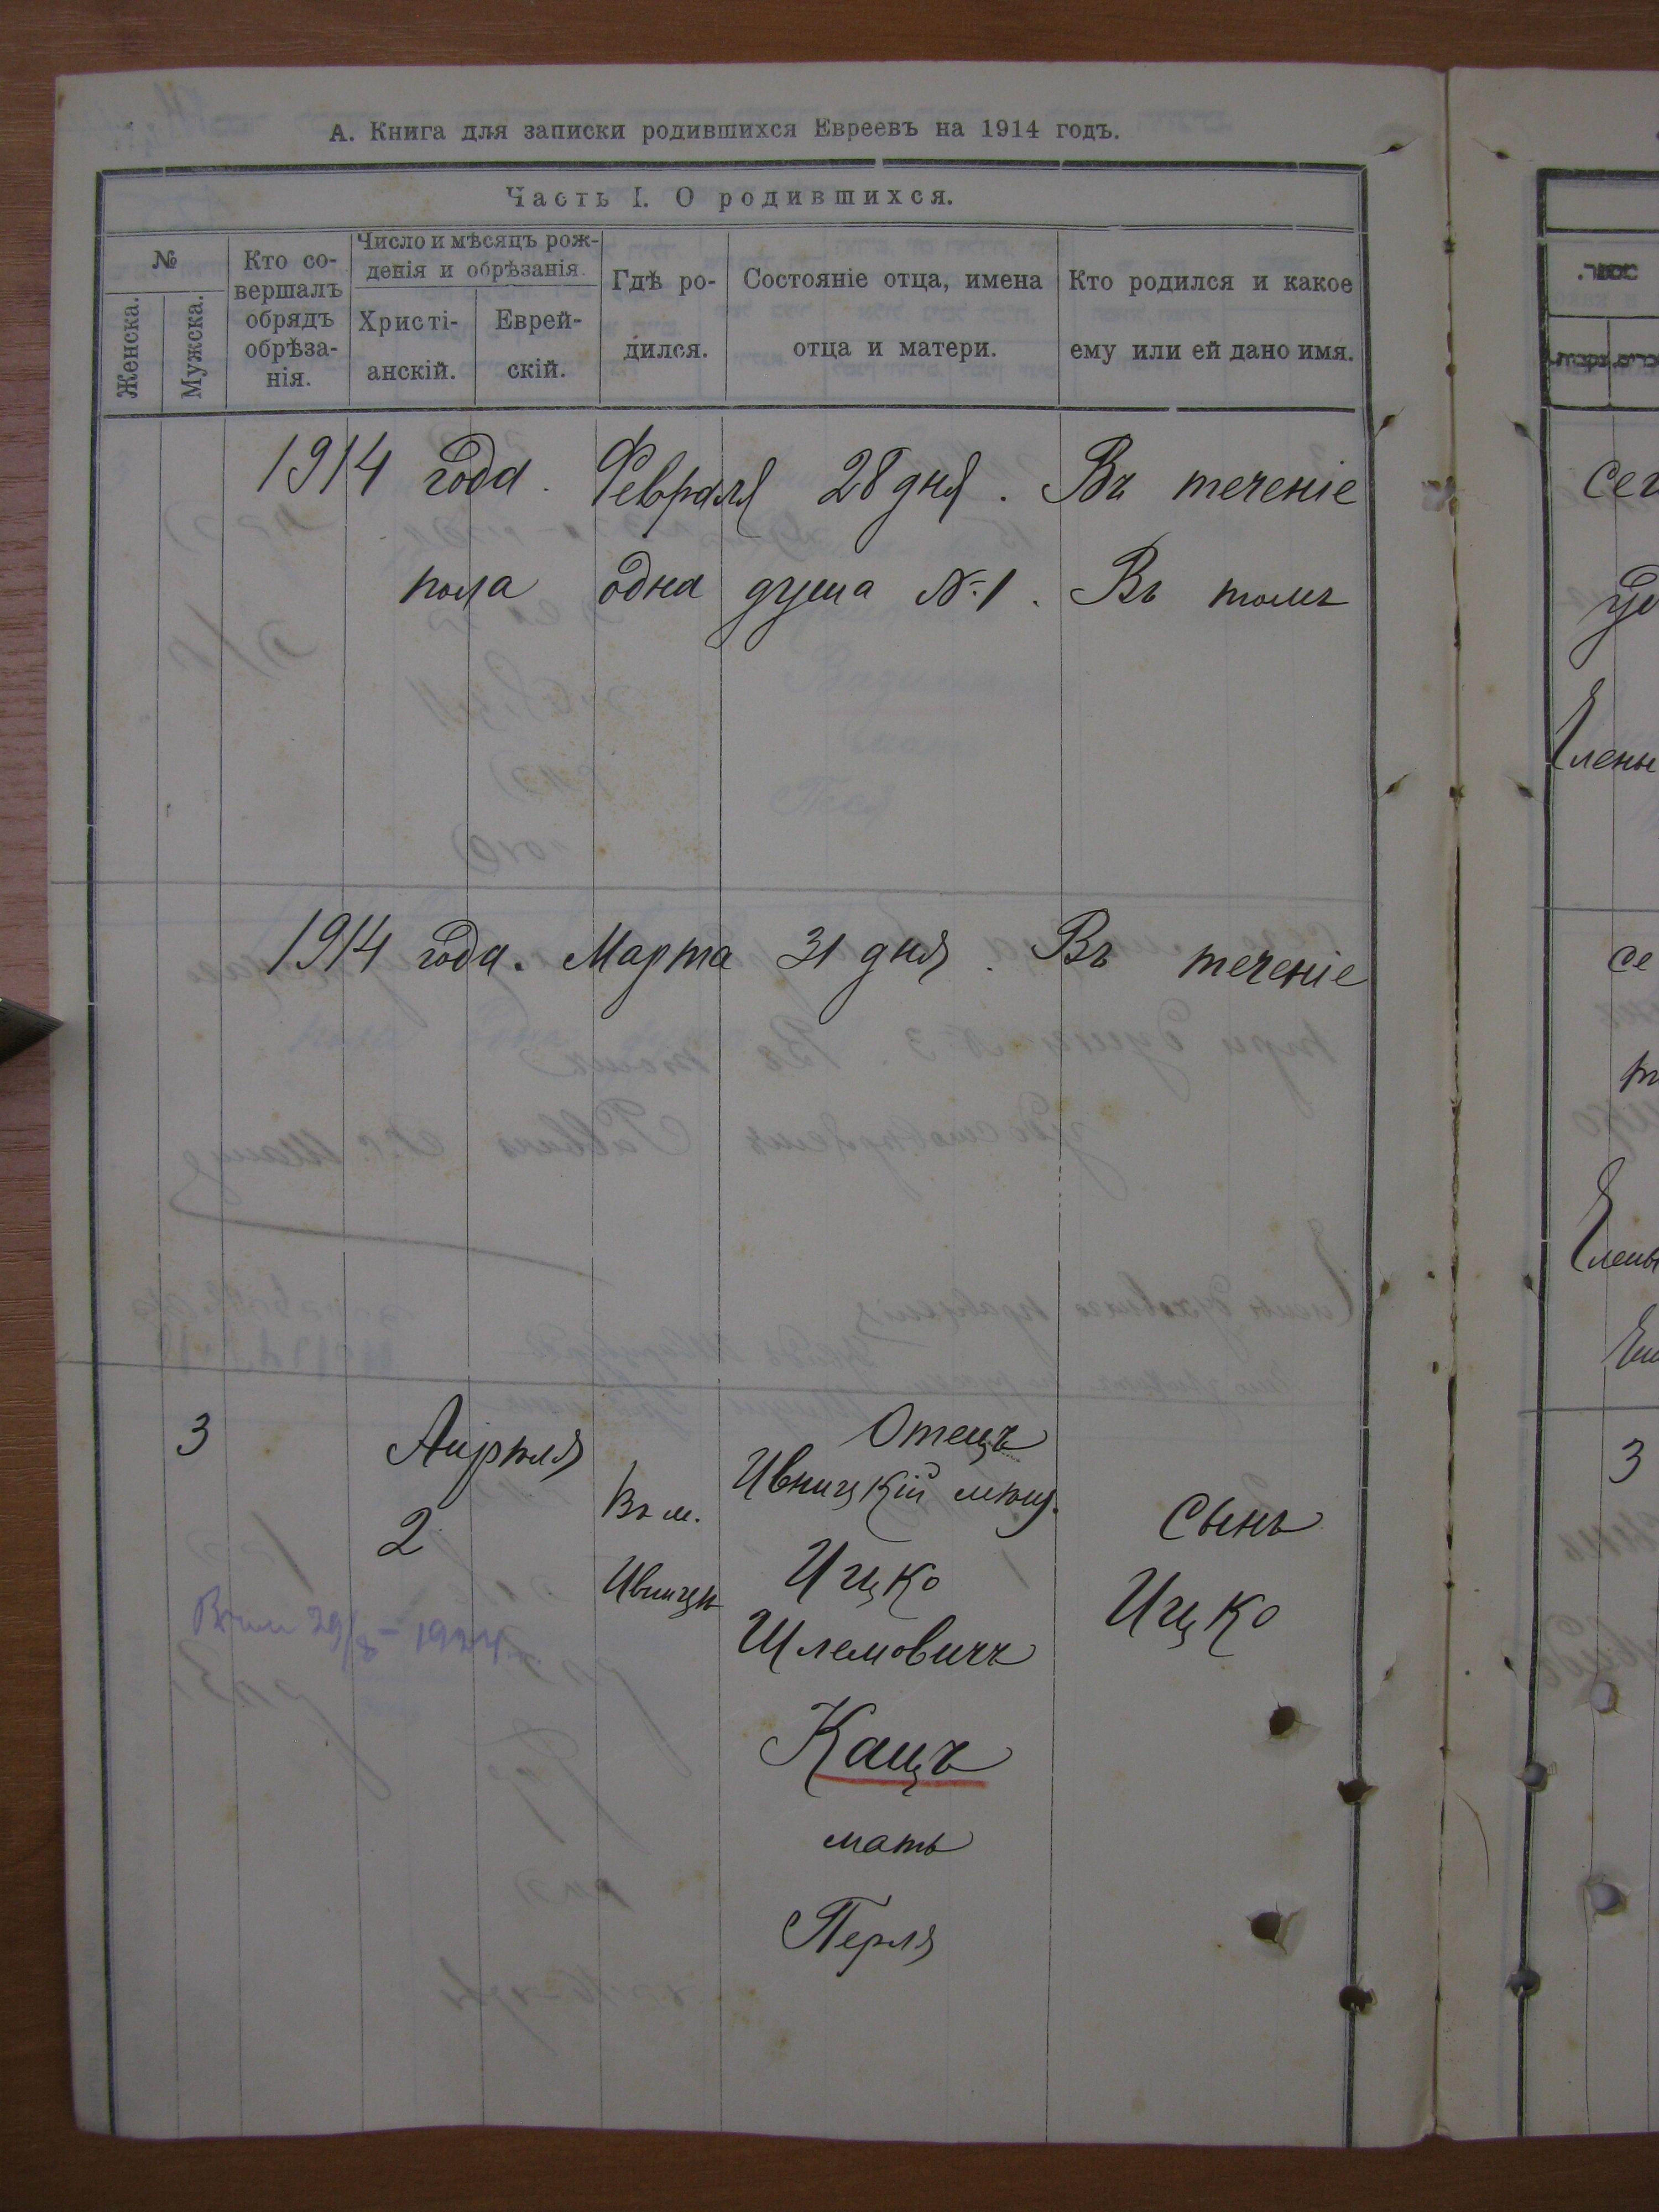 А. Книга для записки родившихся Евреевъ на 1914 годъ.
Часть I. О родившихся.
№
Женска.
Мужска.
Кто со-
вершалъ
обрядъ
обрѣза-
нія.
Число и мѣсяцъ рож-
денія и обрѣзанія.
Христі-
анскій.
Еврей-
скій.
Гдѣ ро-
дился.
Состояніе отца, имена
отца и матери.
Кто родился и какое
ему или ей дано имя.
1914 года. Февраля 28 дня. Въ теченіе
пола одна душа №1. Въ томъ
1914 года. Марта 31 дня. Въ теченіе
3
Апрѣля
2
Въ м.
Ивницѣ
Отецъ
Ивницкій мѣщ.
Ицко
Шлемовичъ
Кацъ
мать
Перля
Сынъ
Ицко
29/8 - 1924
се
3